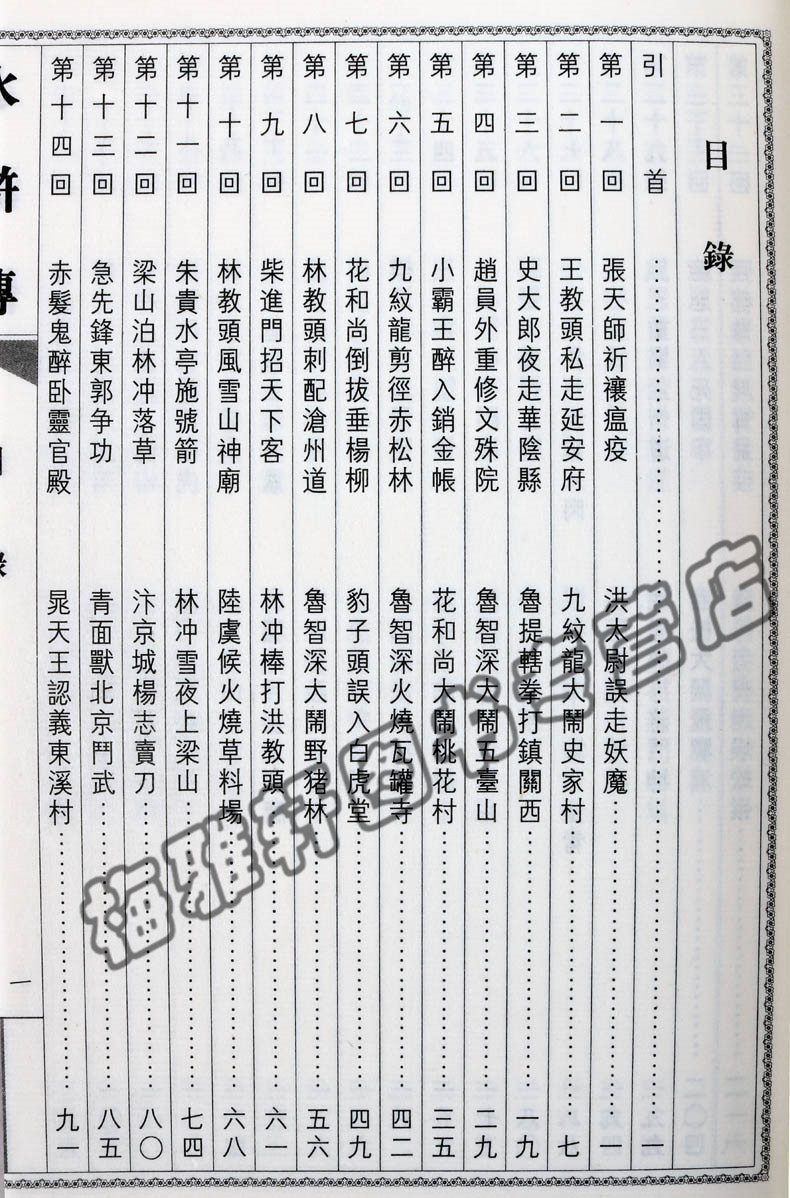 目錄
引首……一
第一回 張天師祈禳瘟疫 洪太尉誤走妖魔……
第二回 王教頭私走延安府 九紋龍大鬧史家村……七
第三回 史大郎夜走華陰縣 魯提轄拳打鎮關西……一九
第四回 趙員外重修文殊院 魯智深大鬧五臺山……二九
第五回 小霸王醉入銷金帳 花和尚大鬧桃花村……三五
第六回 九紋龍剪徑赤松林 魯智深火燒瓦罐寺……四二
第七回 花和尚倒拔垂楊柳 豹子頭誤入白虎堂……四九
第八回 林教頭刺配滄州道 魯智深大鬧野猪林……五六
第九回 柴進門招天下客 林冲棒打洪教頭……六一
第十回 林教頭風雪山神廟 陸虞候火燒草料場……六八
第十一回 朱貴水亭施號箭 林冲雪夜上梁山……七四
第十二回 梁山泊林冲落草 汴京城楊志賣刀……八〇
第十三回 急先鋒東郭争功 青面獸北京鬥武……八五
第十四回 赤髮鬼醉卧靈官殿 晁天王認義東溪村……九一
水滸傳
目錄
一
梅雅轩图书专营店